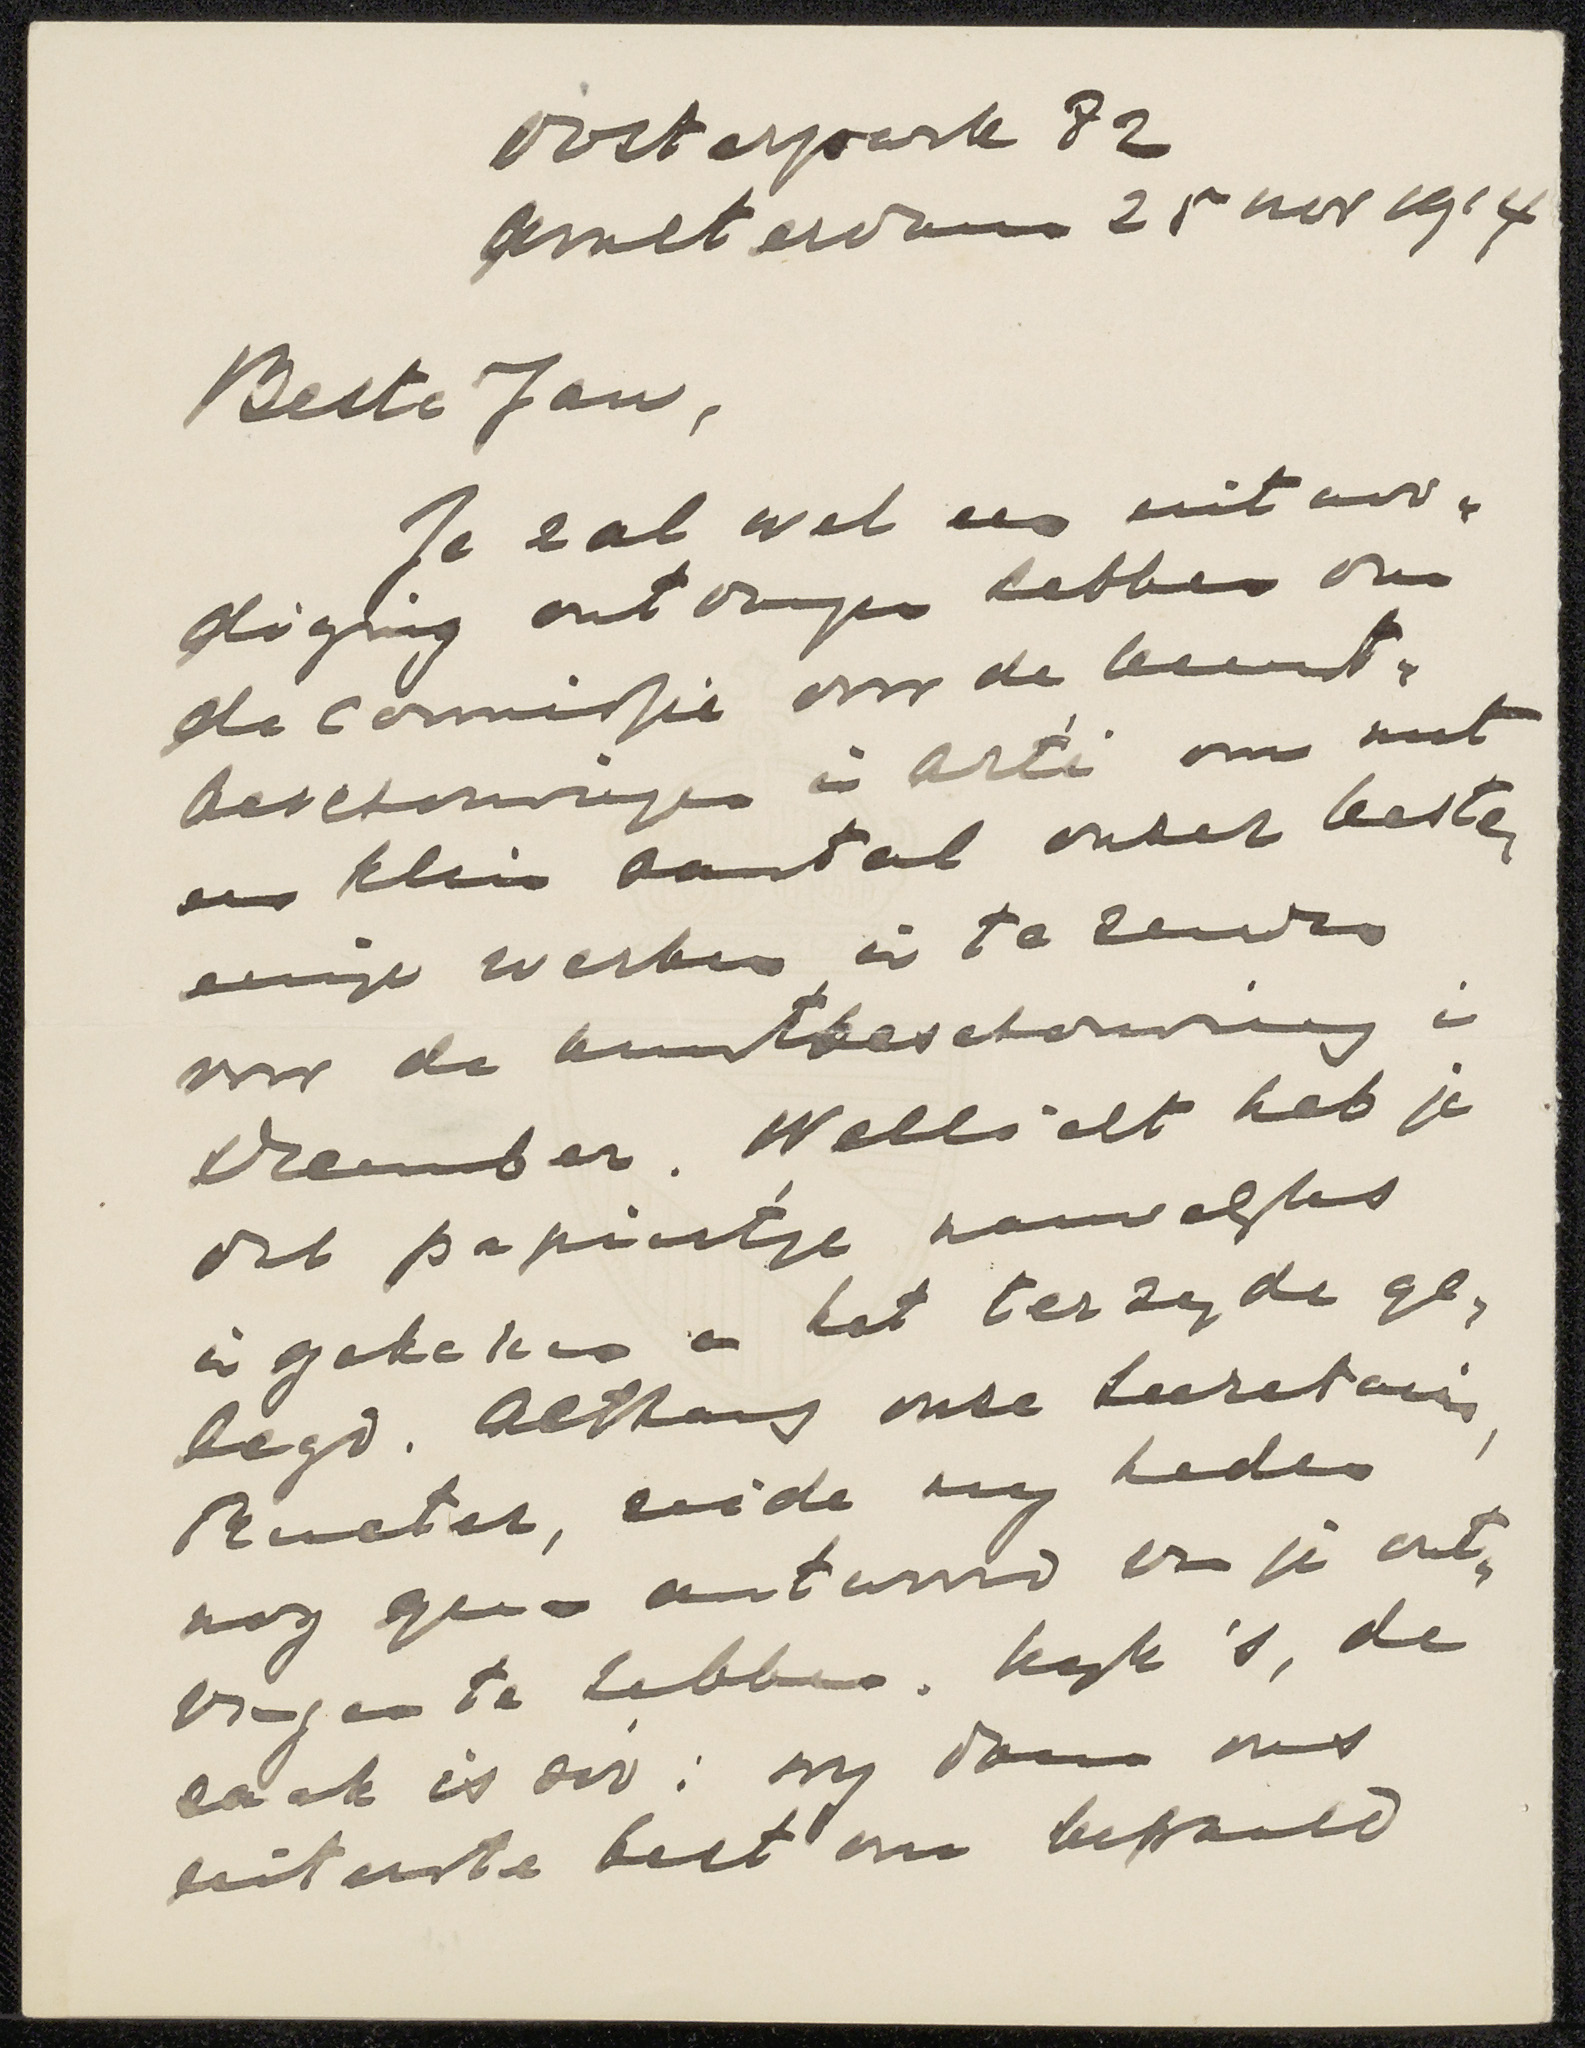 Oosterpark 82
Amsterdam 25 nov 1914
Beste Jan,
Je zal wel een uitnoo-
diging ontvangen hebben van
de commissie voor de kunst-
beschouwingen in Arti om met
een klein aantal onzer beste,
eenige werken in te zenden
voor de kunstbeschouwing in
December. Wellicht heb je
dat papiertje nauwelijks
ingekeken en het terzyde ge-
legd. Althans onze secretaris,
Rueter, zeide my heden
nog geen antwoord van je ont-
vangen te hebben. Kyk 's, de
zaak is zoo: wy doen ons
uiterste best om bepaald